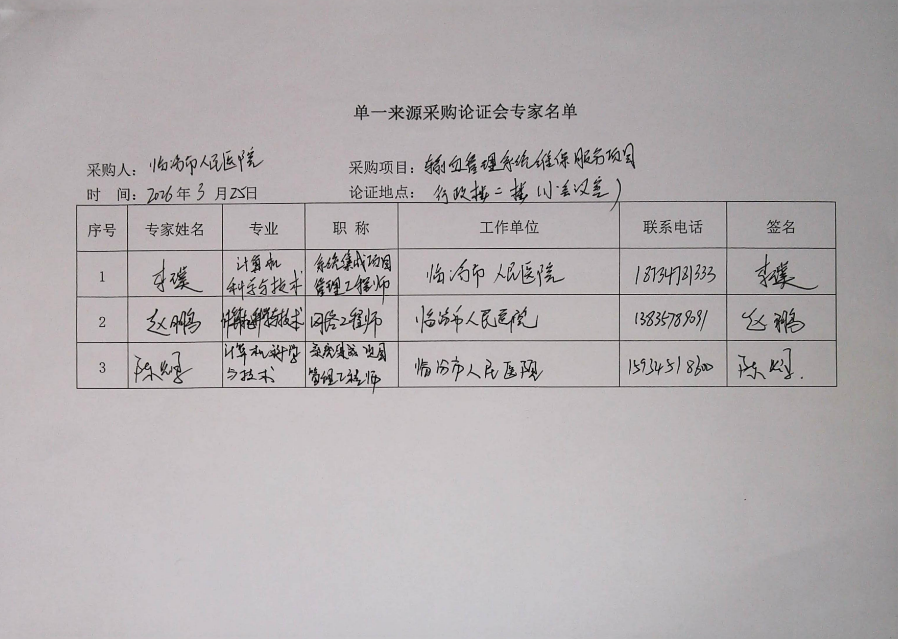 单一来源采购论证会专家名单
采购人：临汾市人民医院 采购项目：输血管理系统维保服务项目
时 间：2026年3月25日 论证地点：行政楼二楼（小会议室）
序号 专家姓名 专业 职称 工作单位 联系电话 签名
1 李璞 计算机科学与技术 系统集成项目管理工程师 临汾市人民医院 18734781333 李璞
2 赵鹏 计算机科学与技术 网络工程师 临汾市人民医院 赵鹏
3 陈 计算机科学与技术 系统集成项目管理工程师 临汾市人民医院 15934518600 陈